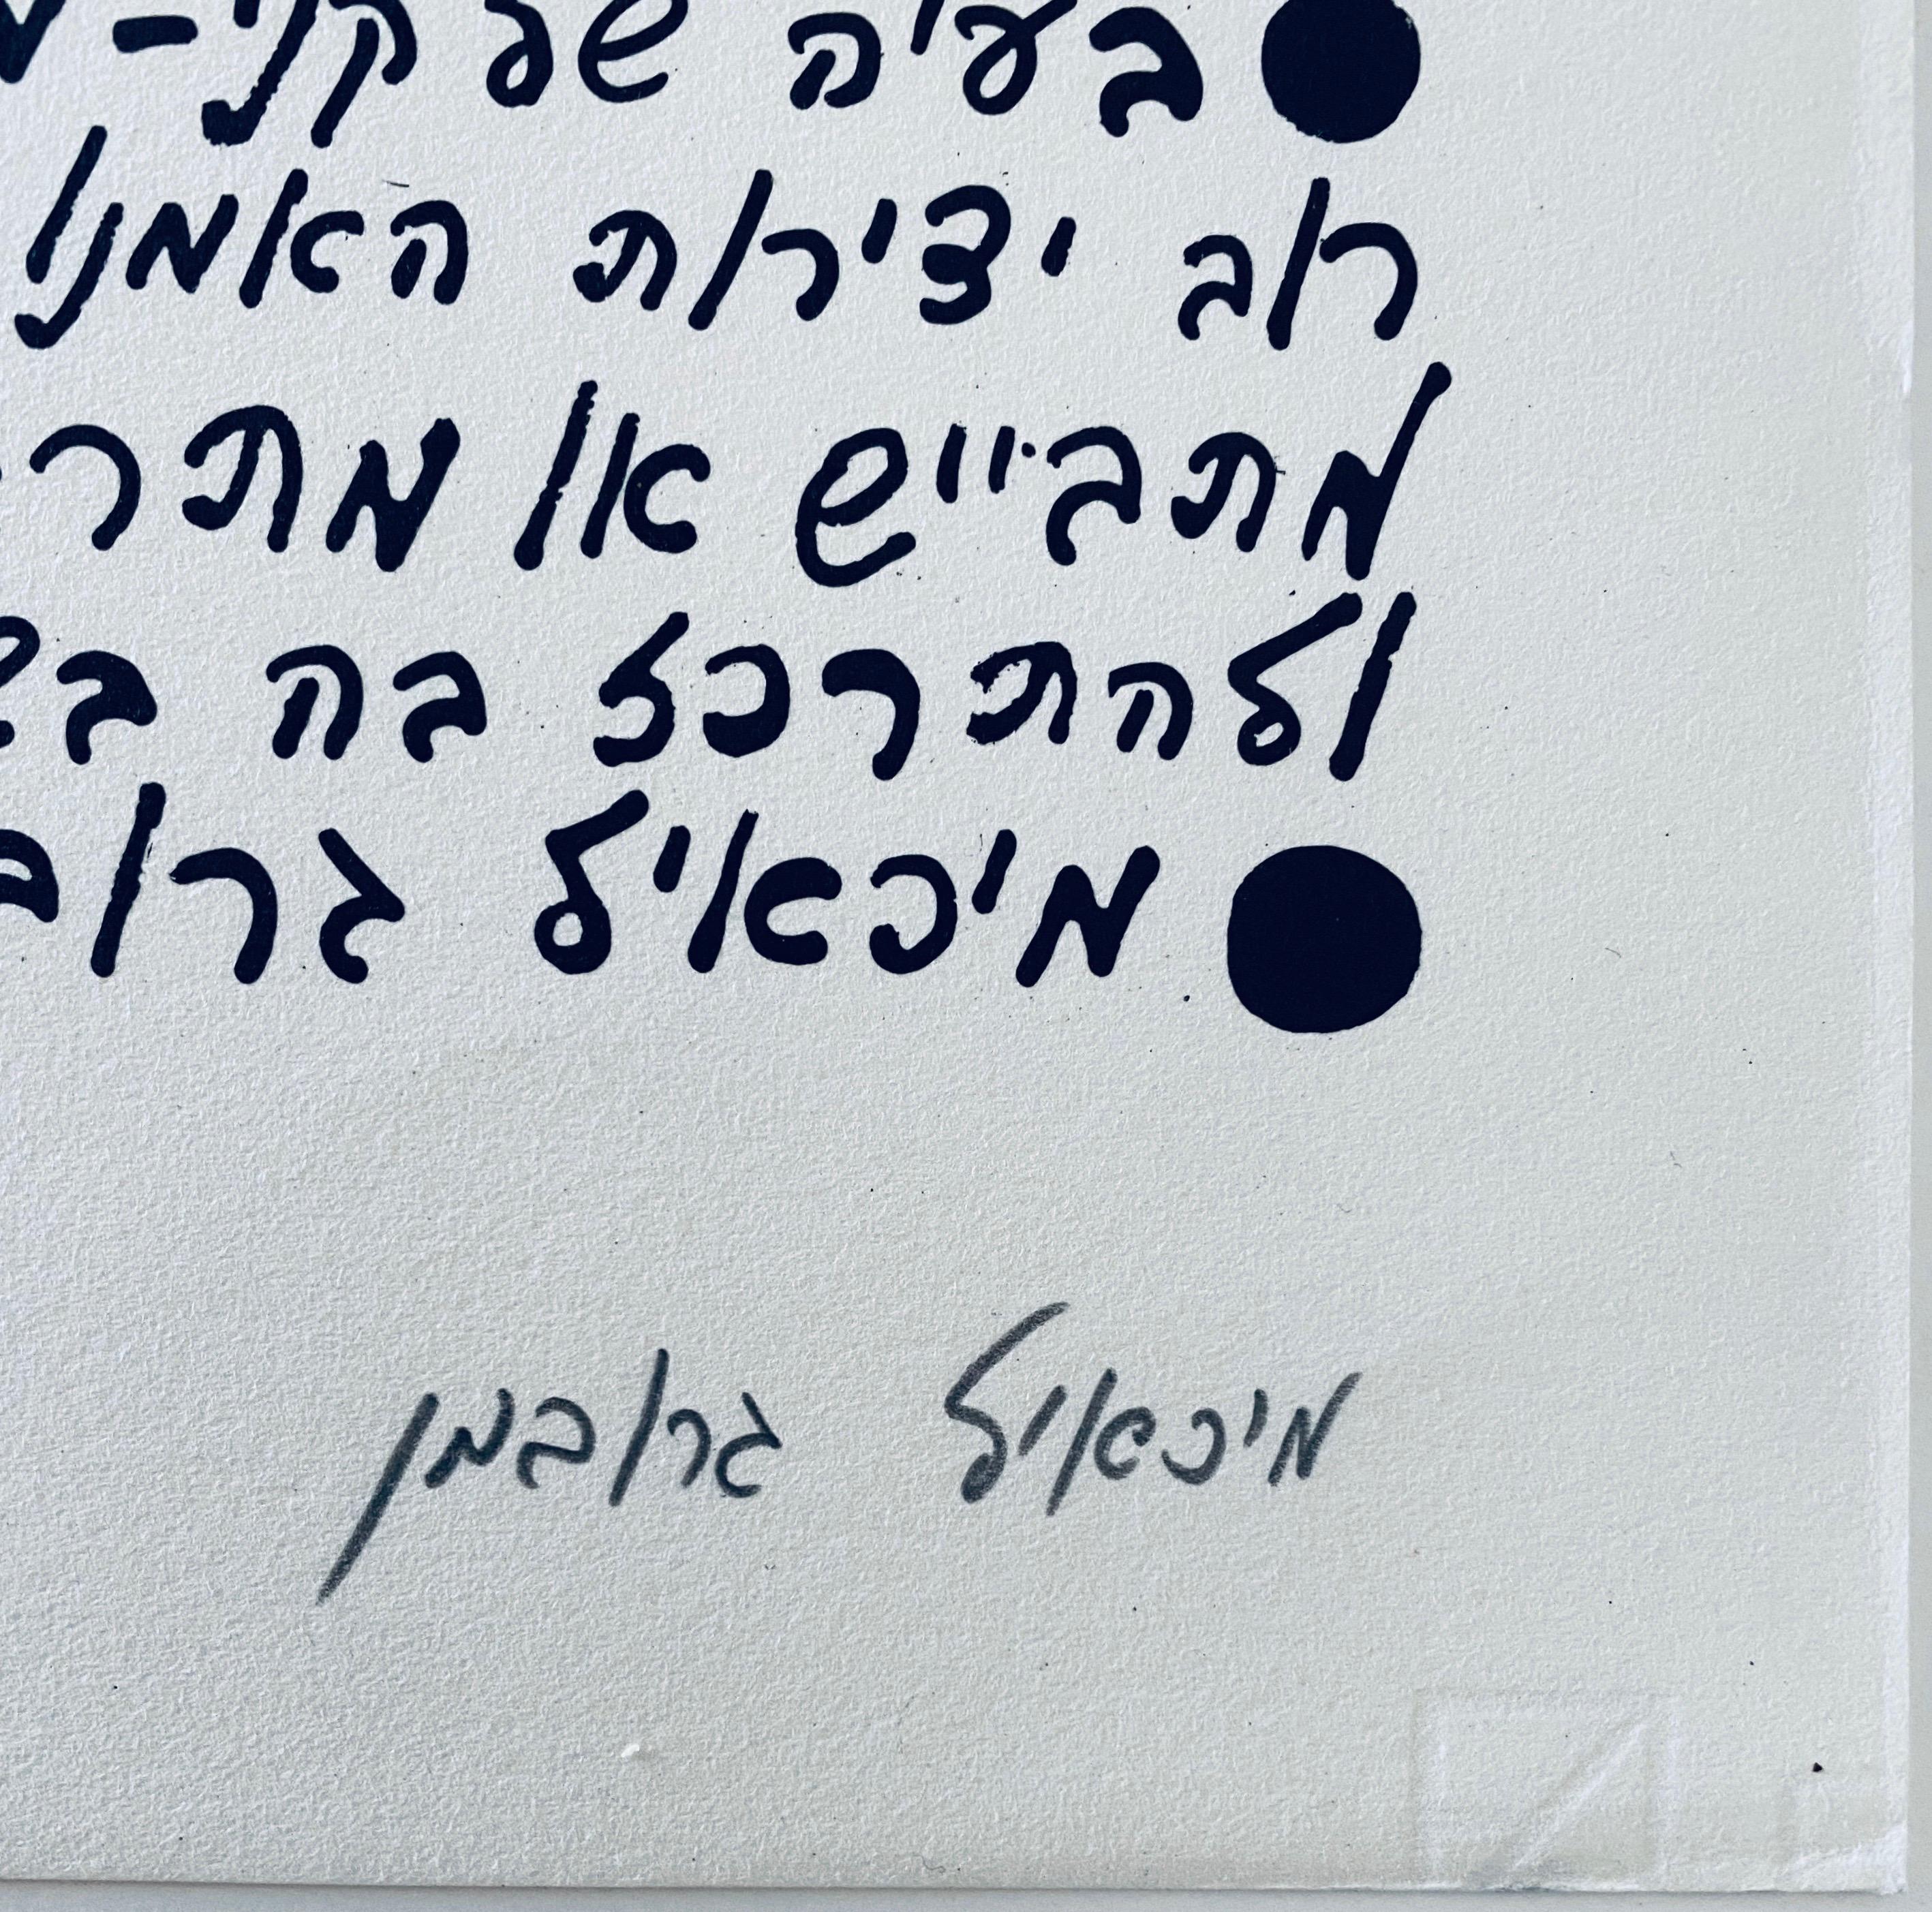 בעיה של קני-
רוב יצירות האמנו
מתבייש או מתר
ולהתרכז בה
מיכאיל גרוב
מיכאיל גרובמן